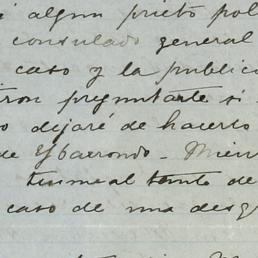 algun prieto pol
consulado general
caso y la publica
ron preguntarte si
dejaré de hacerlo
de Ybarrondo - Mien
al tanto de
caso de una desg